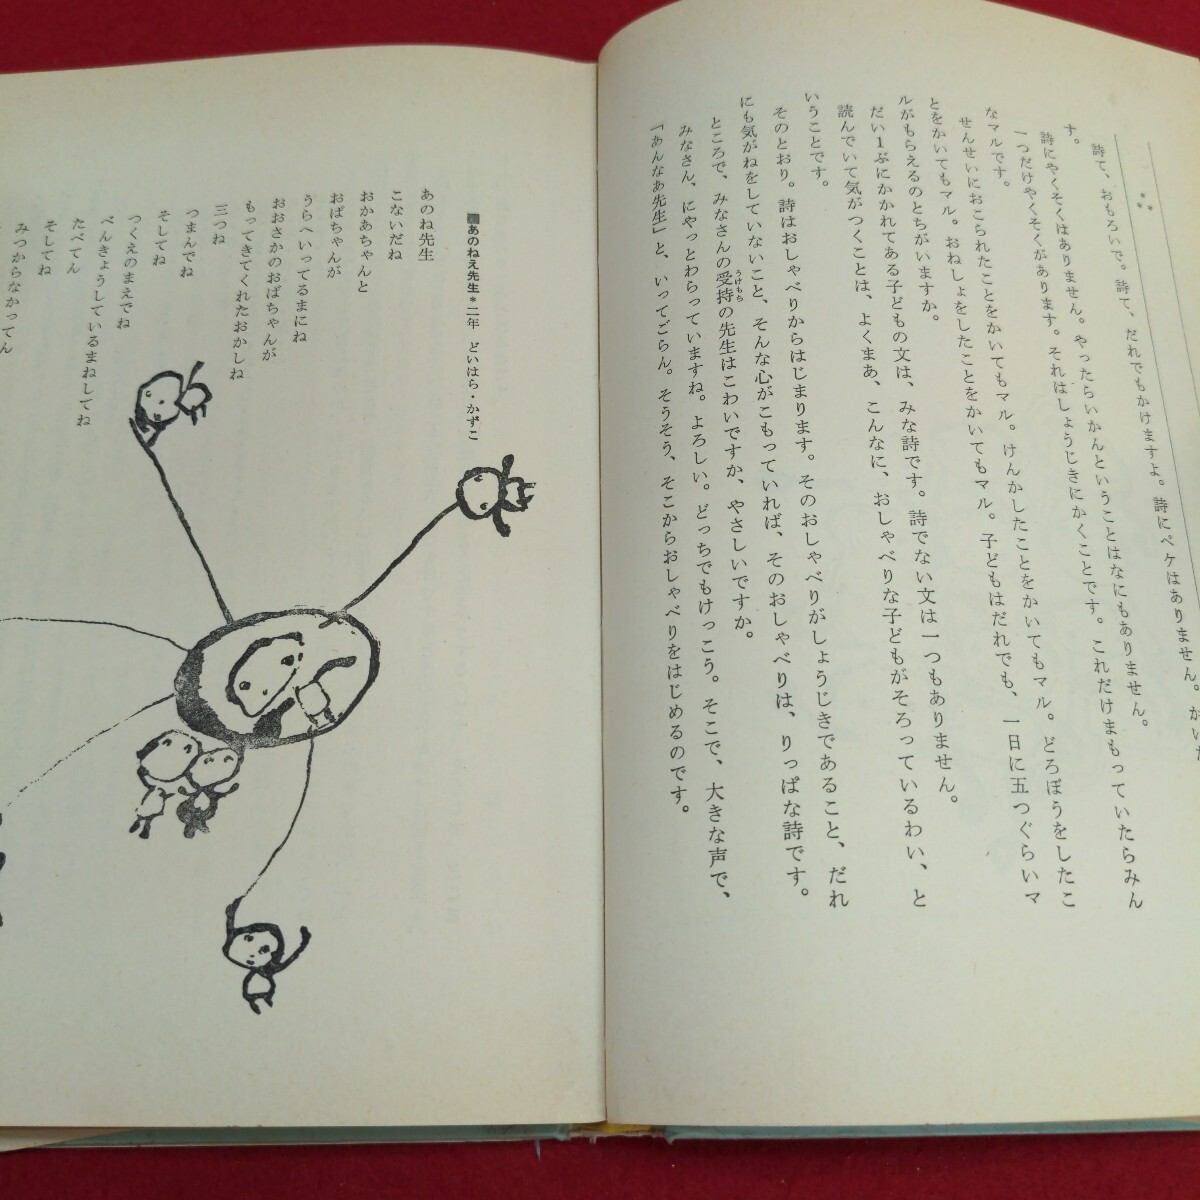 詩て、おもろいで。詩て、だれでもかけますよ。詩にペケはありません。かいた
す。
詩にやくそくはありません。やったらいかんということはなにもありません。
一つだけやくそくがあります。それはしょうじきにかくことです。これだけまもっていたらみん
なマルです。
せんせいにおこられたことをかいてもマル。けんかしたことをかいてもマル。どろぼうをしたこ
とをかいてもマル。おねしょをしたことをかいてもマル。子どもはだれでも、一日に五つぐらいマ
ルがもらえるのとちがいますか。
だい1ぶにかかれてある子どもの文は、みな詩です。詩でない文は一つもありません。
読んでいて気がつくことは、よくまあ、こんなに、おしゃべりな子どもがそろっているわい、と
いうことです。
そのとおり。詩はおしゃべりからはじまります。そのおしゃべりがしょうじきであること、だれ
にも気がねをしていないこと、そんな心がこもっていれば、そのおしゃべりは、りっぱな詩です。
ところで、みなさんの受持の先生はこわいですか、やさしいですか。
うけもち
みなさん、にやっとわらっていますね。よろしい。どっちでもけっこう。そこで、大きな声で、
「あんなあ先生」と、いってごらん。そうそう、そこからおしゃべりをはじめるのです。
■あのねえ先生＊二年 どいはら・かずこ
あのね先生
こないだね
おかあちゃんと
おばちゃんが
うらへいってるまにね
おおさかのおばちゃんが
もってきてくれたおかしね
三つね
つまんでね
そしてね
つくえのまえでね
べんきょうしているまねしてね
たべてん
そしてね
みつからなかってん